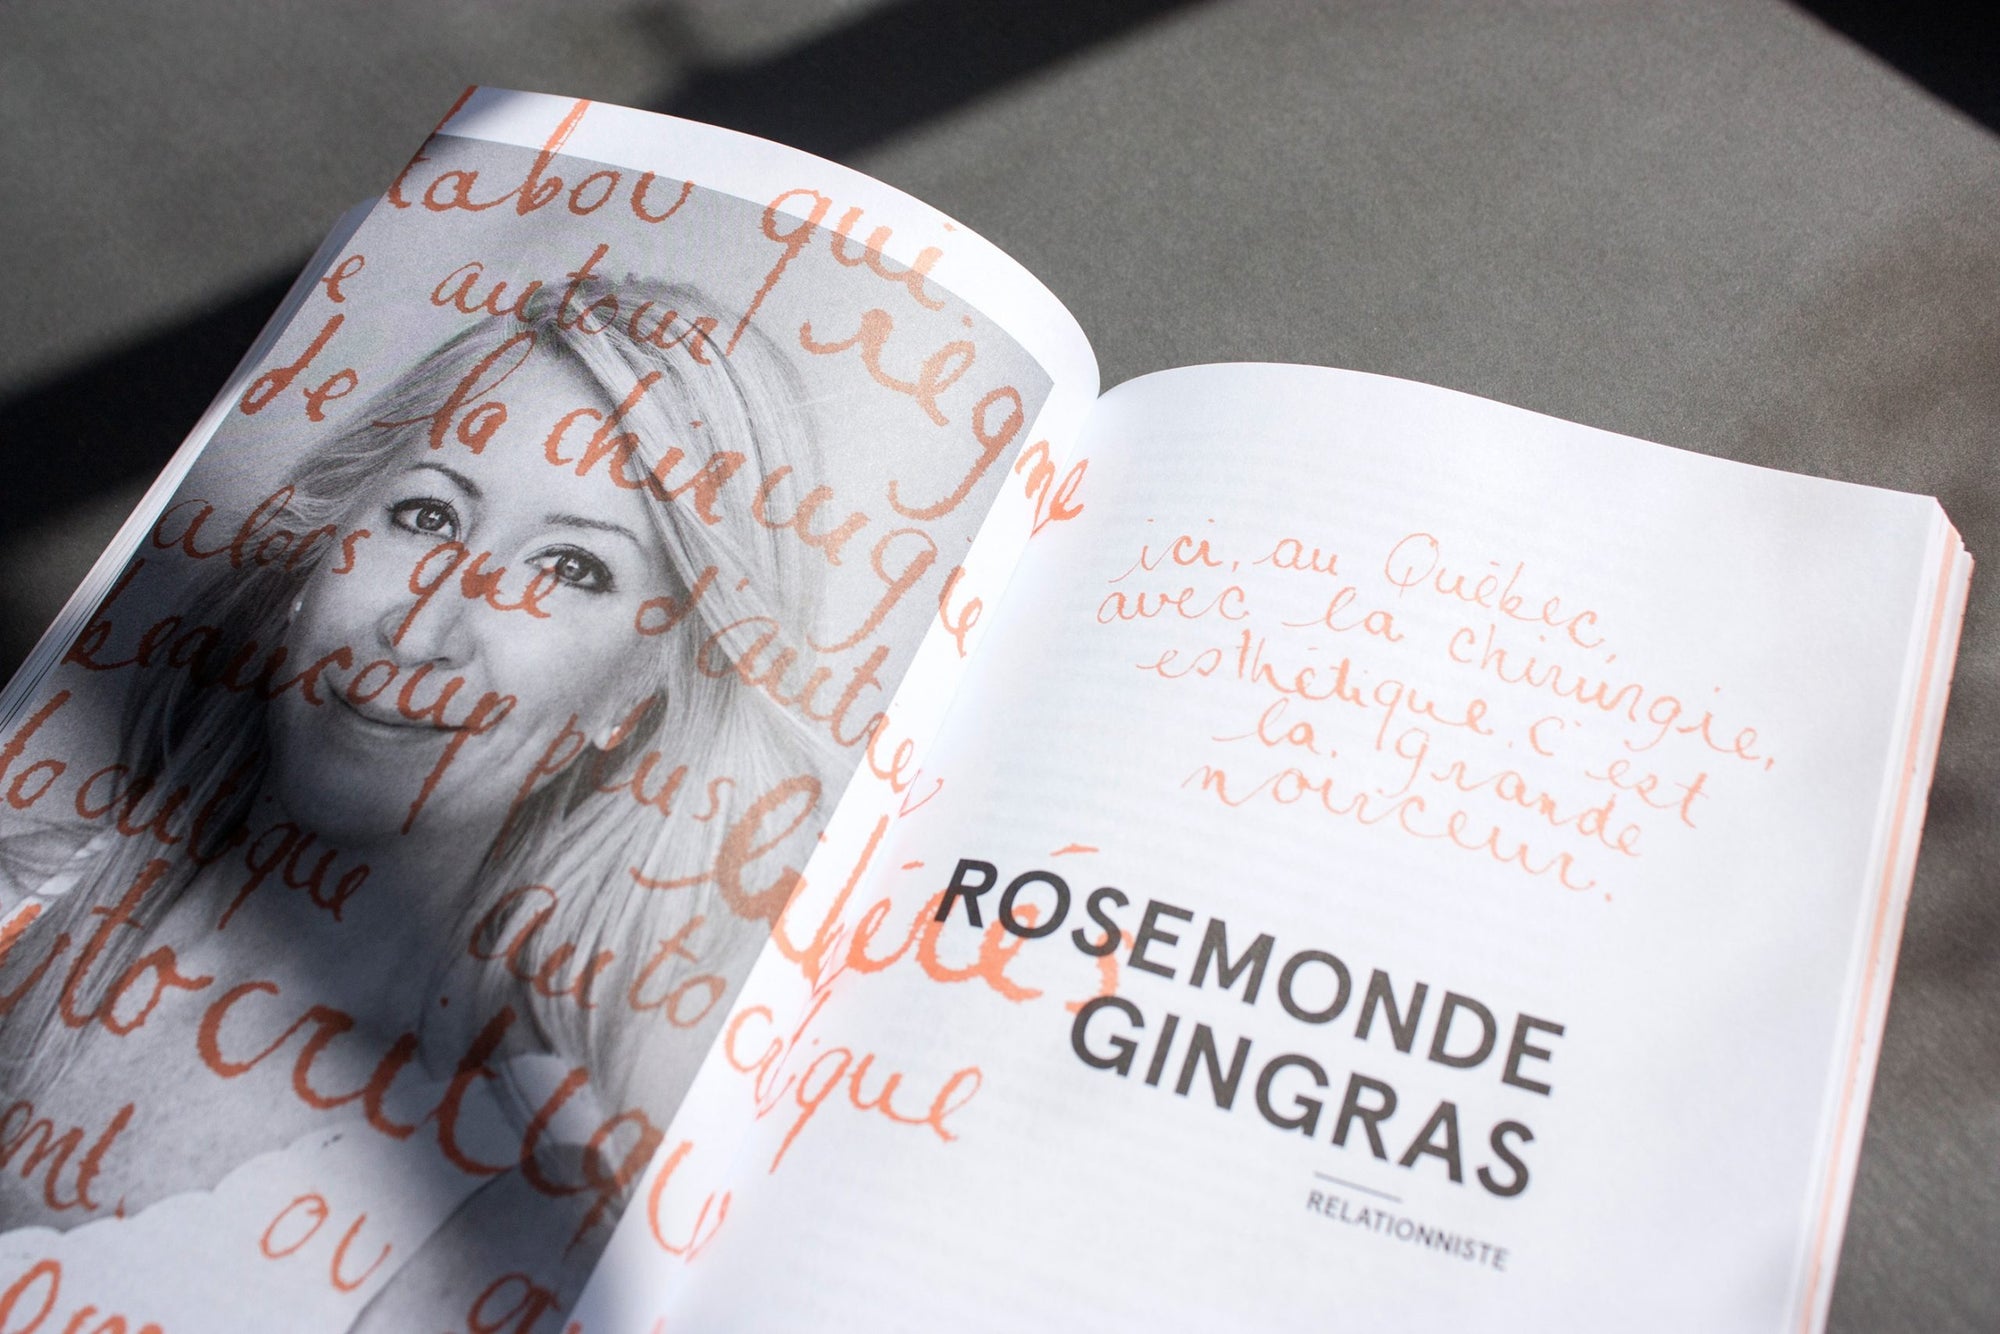 tabou qui règne
e autour
de la chirurgie
alors que d'autres
beaucoup plus libérés
autocritique
autocritique
ou
ici, au Québec,
avec la chirurgie,
esthétique c'est
la grande
noirceur.
ROSEMONDE
GINGRAS
RELATIONNISTE